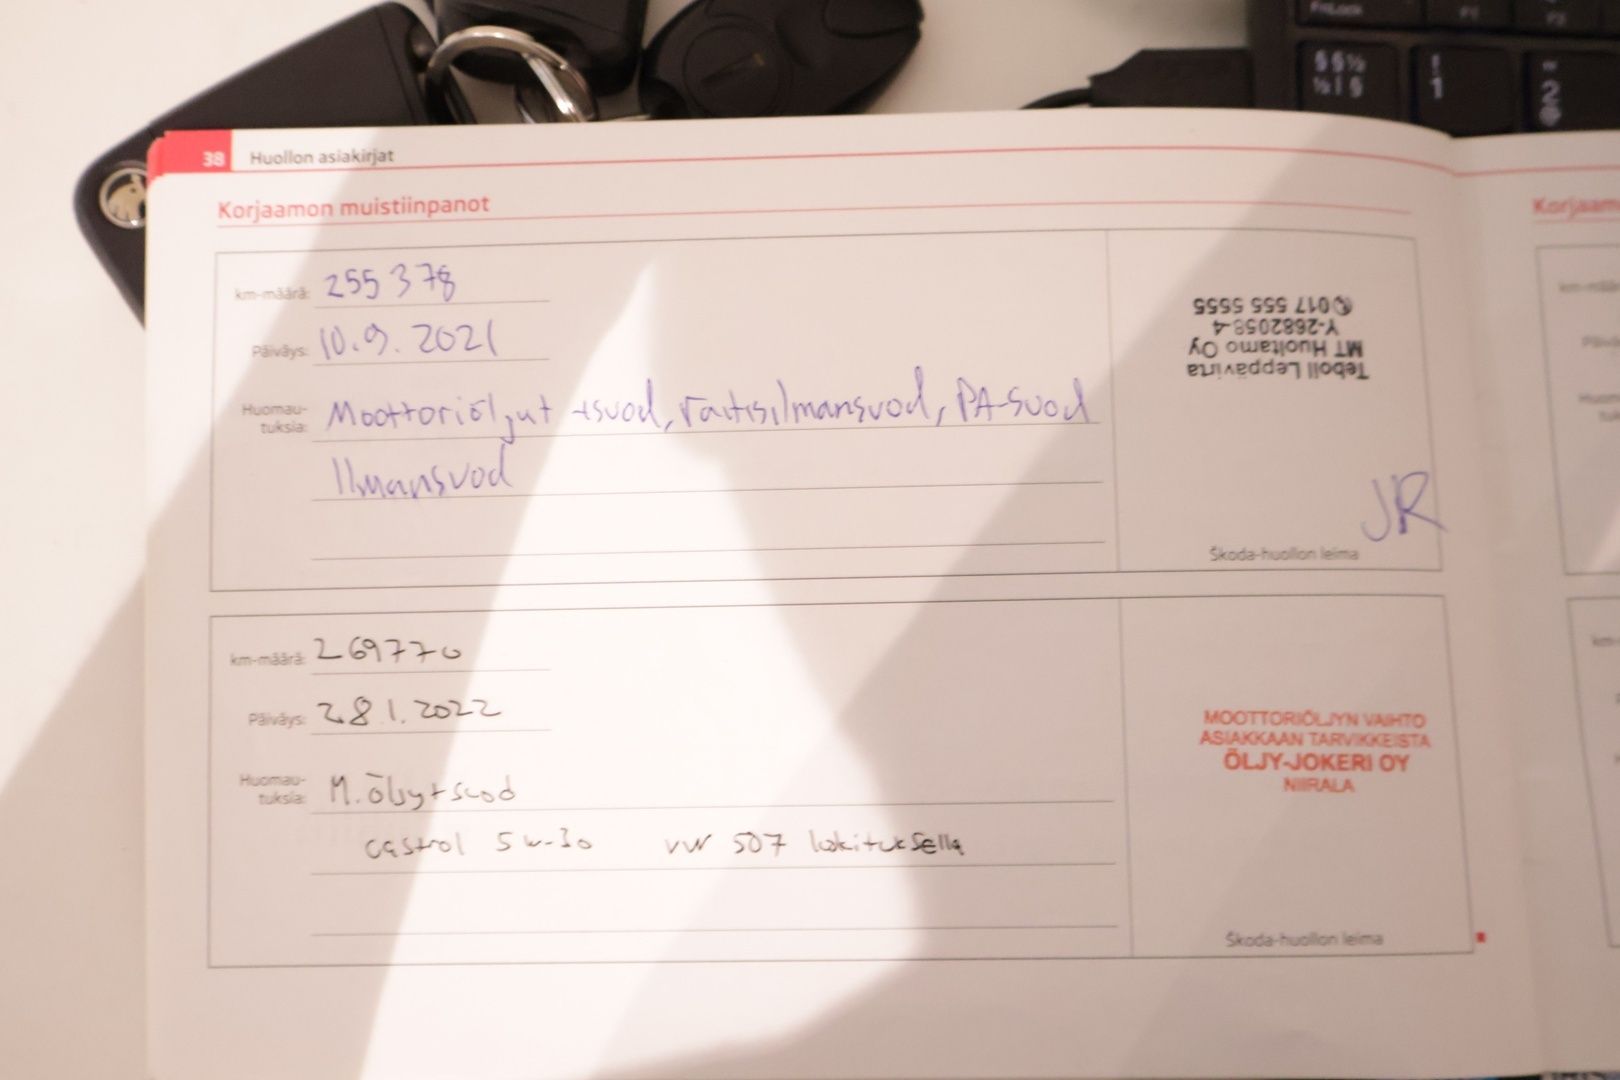 FnLock
F1
F2
§ § ½
½ | §
!
1
"
2
@
38 Huollon asiakirjat
Korjaamon muistiinpanot
km-määrä: 255 378
Päiväys: 10.9.2021
Huomau-
tuksia: Moottoriöljyt +suod, raitisilmansuod, PA-suod
Ilmansuod
Teboil Leppävirta
MT Huoltamo Oy
Y-2682058-4
✆017 555 5655
JR
Škoda-huollon leima
km-määrä: 269770
Päiväys: 28.1.2022
Huomau-
tuksia: M.öljy+suod
castrol 5w-30 vw 507 lukituksella
MOOTTORIÖLJYN VAIHTO
ASIAKKAAN TARVIKKEISTA
ÖLJY-JOKERI OY
NIIRALA
Škoda-huollon leima
Korjaam